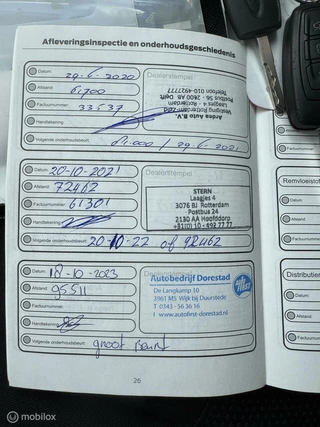 Afleveringsinspectie en onderhoudsgeschiedenis
Datum: 29-6-2020
Afstand: 61,700
Factuurnummer: 33537
Handtekening:
Volgende onderhoudsbeurt: 91.000 / 29-6-2021
Dealerstempel
Arena Auto B.V.
Vestiging Rotterdam-Zuid
Laagjes 4 - Rotterdam
Postbus 56 - 2600 AB Delft
Telefoon 010-4927777
Datum: 20-10-2021
Afstand: 72462
Factuurnummer: 61301
Handtekening:
Volgende onderhoudsbeurt: 20-10-22 of 92462
Dealerstempel
STERN
Laagjes 4
3076 BJ Rotterdam
Postbus 24
2130 AA Hoofddorp
Datum: 18-10-2023
Afstand: 95511
Factuurnummer:
Handtekening:
Volgende onderhoudsbeurt: groot Beurt
Autobedrijf Dorestad
De Langkamp 10
3961 MS Wijk bij Duurstede
T 0343 - 56 36 16
I www.autofirst-dorestad.nl
26
Remvloeistof
Datum:
Afstand
Factuur
Distributier
mobilox